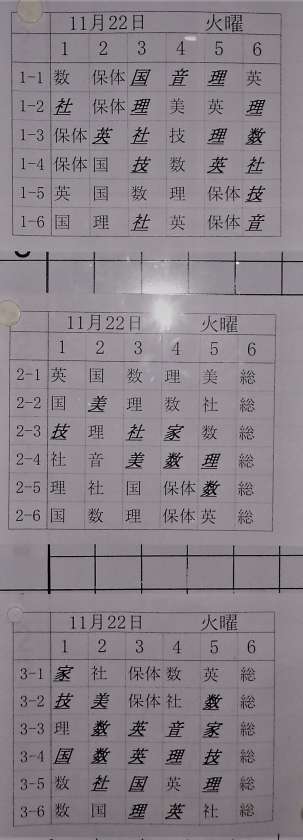 11月22日 火曜
1 2 3 4 5 6
1-1 数 保体 国 音 理 英
1-2 社 保体 理 美 英 理
1-3 保体 英 社 技 理 数
1-4 保体 国 技 数 英 社
1-5 英 国 数 理 保体 技
1-6 国 理 社 英 保体 音
11月22日 火曜
1 2 3 4 5 6
2-1 英 国 数 理 美 総
2-2 国 美 理 数 社 総
2-3 技 理 社 家 数 総
2-4 社 音 美 数 理 総
2-5 理 社 国 保体 数 総
2-6 国 数 理 保体 英 総
11月22日 火曜
1 2 3 4 5 6
3-1 家 社 保体 数 英 総
3-2 技 美 保体 社 数 総
3-3 理 数 英 音 家 総
3-4 国 数 英 理 技 総
3-5 数 社 国 英 理 総
3-6 数 国 理 英 社 総